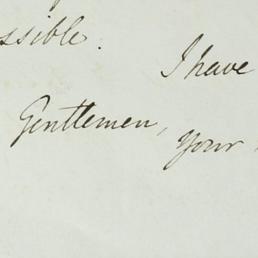 ssible. I have
Gentlemen, your